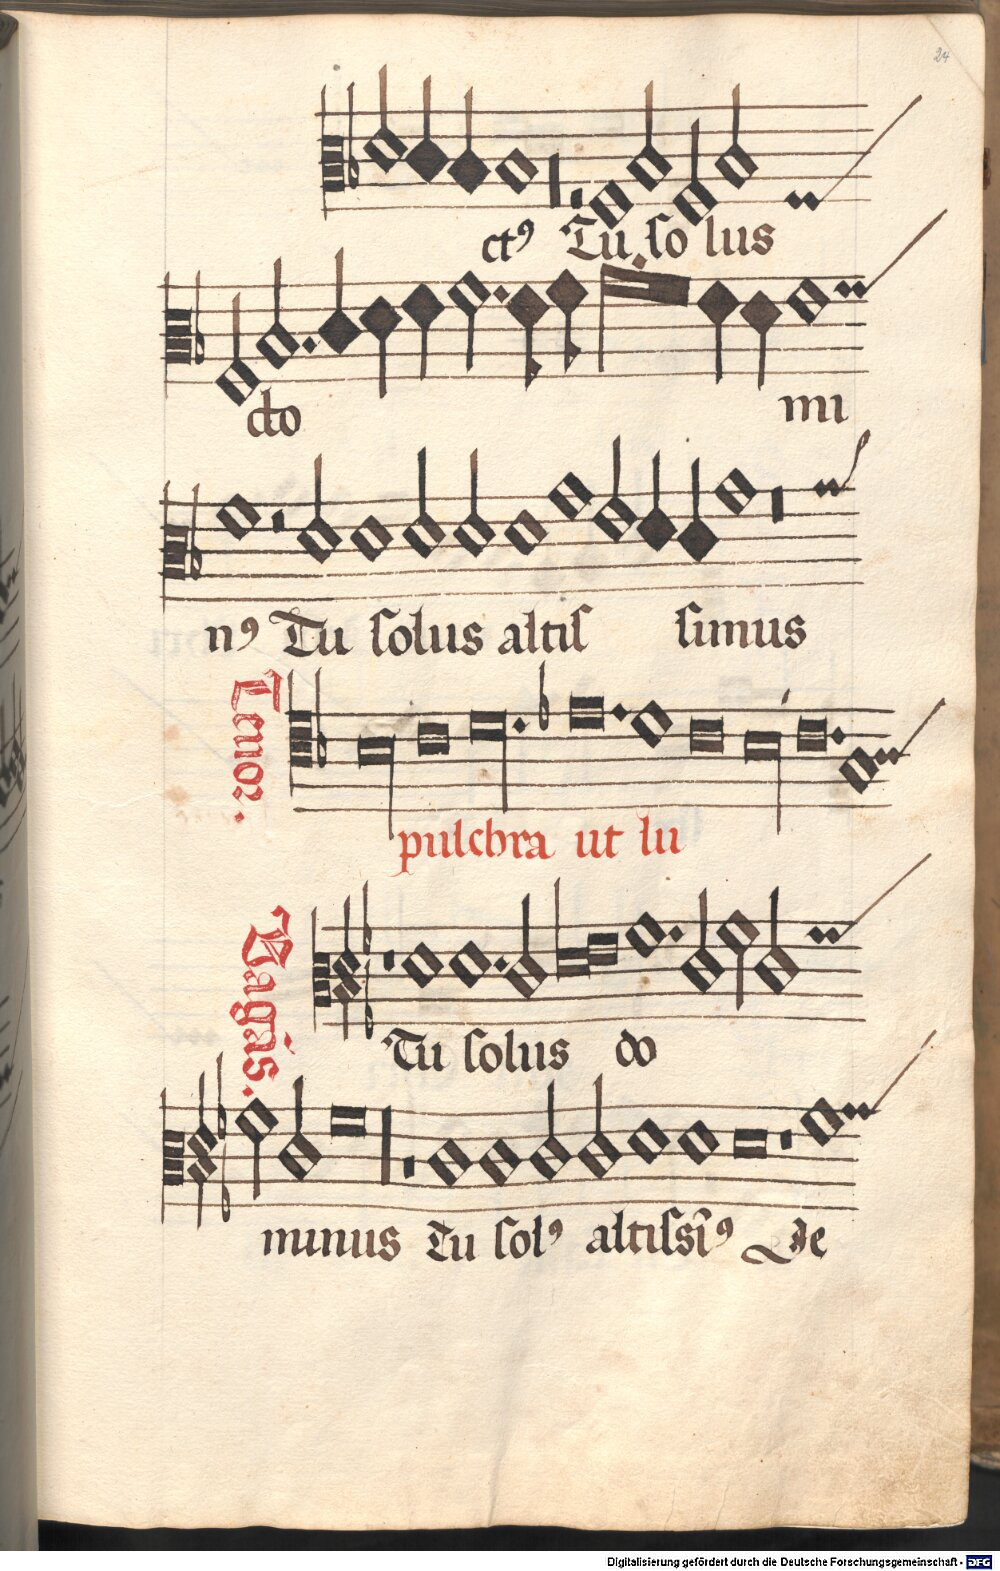 24
ctꝰ Tu so lus
do mi
nꝰ Tu solus altis simus
Tenor.
pulchra ut lu
Vagās.
Tu solus do
minus Tu solꝰ altissīꝰ Je
Digitalisierung gefördert durch die Deutsche Forschungsgemeinschaft - DFG